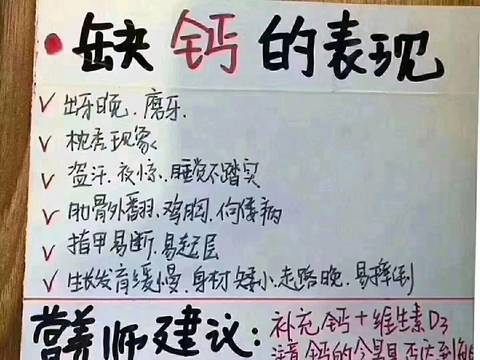 缺钙的表现
✓ 出牙晚、磨牙.
✓ 枕秃现象
✓ 盗汗、夜惊、睡觉不踏实
✓ 肋骨外翻、鸡胸、佝偻病
✓ 指甲易断、易起层
✓ 生长发育缓慢、身材矮小、走路晚、易摔倒
营养师建议: 补充钙+维生素D3
注意钙的含量是否达到